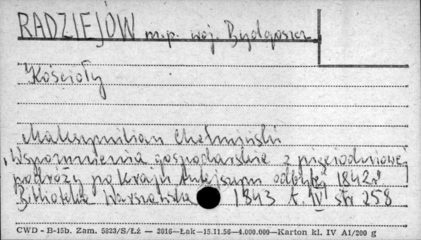 RADZIEJÓW m.p. woj. Bydgoszcz
Kościoły
Maksymilian Chełmiński
"Wspomnienia gospodarskie z pięciodniowej
podróży po kraju tutejszym odbytej 1842 r.
Biblioteka Warszawska 1843 t. IV str 258
CWD - B-15b. Zam. 5323/S/Łż — 2016—Łak—15.11.56—4.000.000—Karton kl. IV A1/200 g